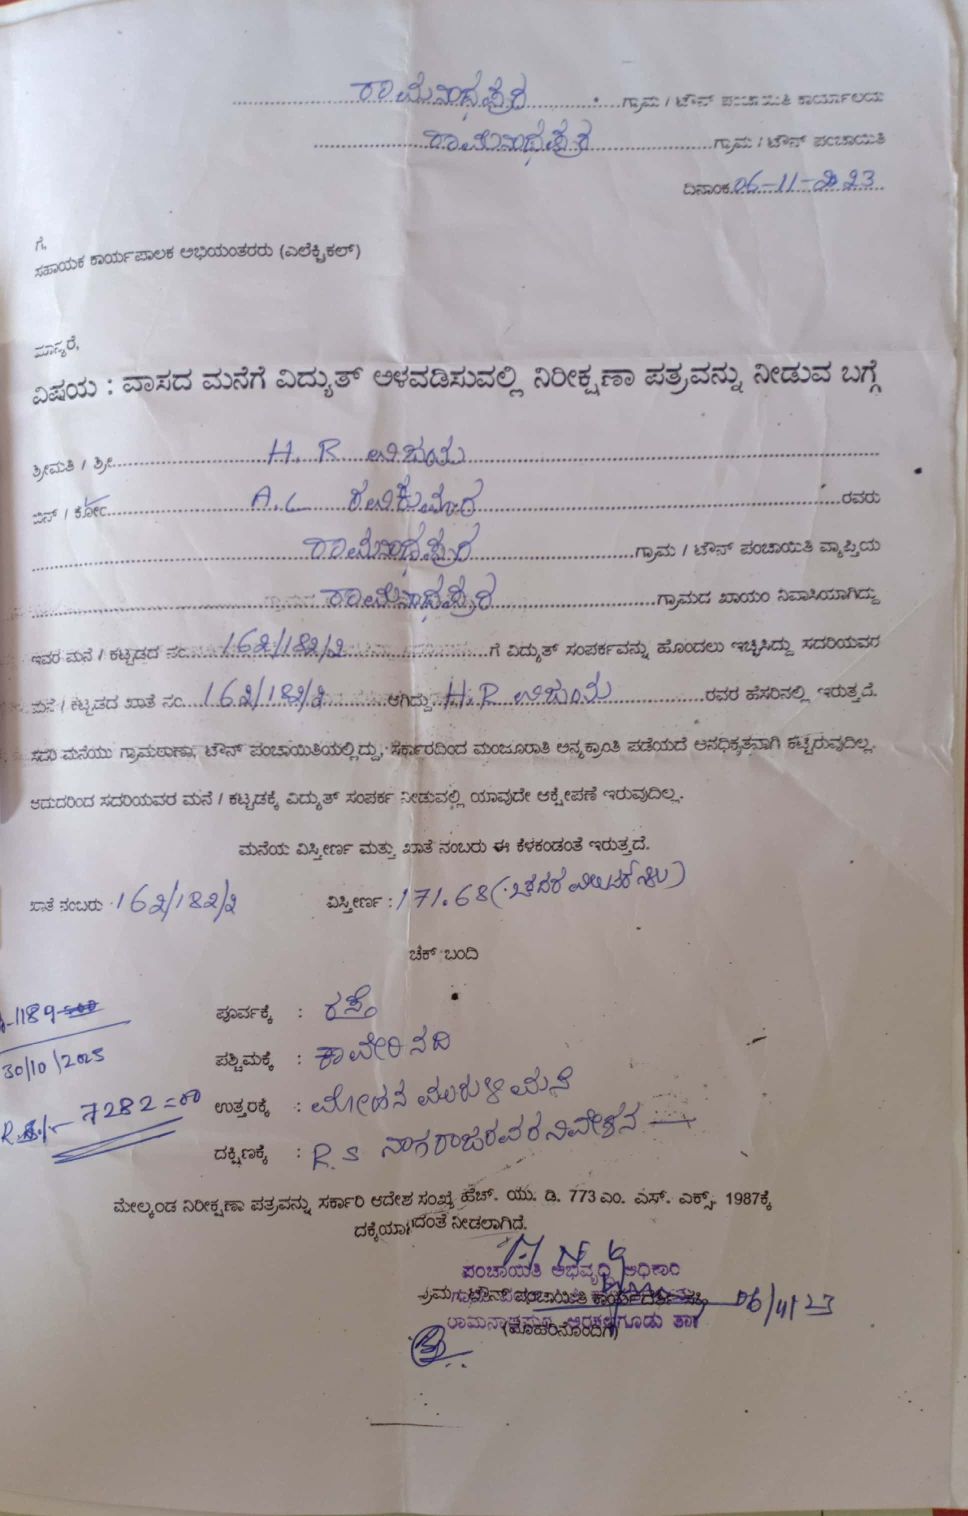 ರಾಮನಾಥಪುರ ಗ್ರಾಮ / ಟೌನ್ ಪಂಚಾಯಿತಿ ಕಾರ್ಯಾಲಯ
ರಾಮನಾಥಪುರ ಗ್ರಾಮ / ಟೌನ್ ಪಂಚಾಯಿತಿ
ದಿನಾಂಕ 06-11-2023
ಗೆ,
ಸಹಾಯಕ ಕಾರ್ಯಪಾಲಕ ಅಭಿಯಂತರರು (ಎಲೆಕ್ಟ್ರಿಕಲ್)
ಮಾನ್ಯರೆ,
ವಿಷಯ : ವಾಸದ ಮನೆಗೆ ವಿದ್ಯುತ್ ಅಳವಡಿಸುವಲ್ಲಿ ನಿರೀಕ್ಷಣಾ ಪತ್ರವನ್ನು ನೀಡುವ ಬಗ್ಗೆ
ಶ್ರೀಮತಿ / ಶ್ರೀ H. R ವಿಜಯ
ಬಿನ್ / ಕೋಂ A.L ಶಿವಕುಮಾರ ರವರು
ರಾಮನಾಥಪುರ ಗ್ರಾಮ / ಟೌನ್ ಪಂಚಾಯಿತಿ ವ್ಯಾಪ್ತಿಯ
ರಾಮನಾಥಪುರ ಗ್ರಾಮದ ಖಾಯಂ ನಿವಾಸಿಯಾಗಿದ್ದು
ಇವರ ಮನೆ / ಕಟ್ಟಡದ ನಂ 162/182/2 ಗೆ ವಿದ್ಯುತ್ ಸಂಪರ್ಕವನ್ನು ಹೊಂದಲು ಇಚ್ಛಿಸಿದ್ದು ಸದರಿಯವರ
ಮನೆ / ಕಟ್ಟಡದ ಖಾತೆ ನಂ 162/182/2 ಆಗಿದ್ದು H.R ವಿಜಯ ರವರ ಹೆಸರಿನಲ್ಲಿ ಇರುತ್ತದೆ.
ಸದರಿ ಮನೆಯು ಗ್ರಾಮಠಾಣಾ, ಟೌನ್ ಪಂಚಾಯಿತಿಯಲ್ಲಿದ್ದು, ಸರ್ಕಾರದಿಂದ ಮಂಜೂರಾತಿ ಅನ್ಯಕ್ರಾಂತಿ ಪಡೆಯದೆ ಅನಧಿಕೃತವಾಗಿ ಕಟ್ಟಿರುವುದಿಲ್ಲ.
ಆದುದರಿಂದ ಸದರಿಯವರ ಮನೆ / ಕಟ್ಟಡಕ್ಕೆ ವಿದ್ಯುತ್ ಸಂಪರ್ಕ ನೀಡುವಲ್ಲಿ ಯಾವುದೇ ಆಕ್ಷೇಪಣೆ ಇರುವುದಿಲ್ಲ.
ಮನೆಯ ವಿಸ್ತೀರ್ಣ ಮತ್ತು ಖಾತೆ ನಂಬರು ಈ ಕೆಳಕಂಡಂತೆ ಇರುತ್ತದೆ.
ಖಾತೆ ನಂಬರು 162/182/2 ವಿಸ್ತೀರ್ಣ : 171.68 (ಚದರ ಮೀಟರ್ ಗಳು)
ಚೆಕ್ ಬಂದಿ
ಪೂರ್ವಕ್ಕೆ : ರಸ್ತೆ
1189
ಪಶ್ಚಿಮಕ್ಕೆ : ಕಾವೇರಿ ನದಿ
30/10/2025
ಉತ್ತರಕ್ಕೆ : ಮೋಹನ ಮುರುಳಿ ಮನೆ
7282=00
ದಕ್ಷಿಣಕ್ಕೆ : R. S ನಾಗರಾಜರವರ ನಿವೇಶನ
ಮೇಲ್ಕಂಡ ನಿರೀಕ್ಷಣಾ ಪತ್ರವನ್ನು ಸರ್ಕಾರಿ ಆದೇಶ ಸಂಖ್ಯೆ ಹೆಚ್. ಯು. ಡಿ. 773 ಎಂ. ಎಸ್. ಎಕ್ಸ್. 1987ಕ್ಕೆ
ನೀಡಲಾಗಿದೆ.
ಪಂಚಾಯಿತಿ ಅಭಿವೃದ್ಧಿ ಅಧಿಕಾರಿ
06/11/23
(ಮೊಹರಿನೊಂದಿಗೆ)